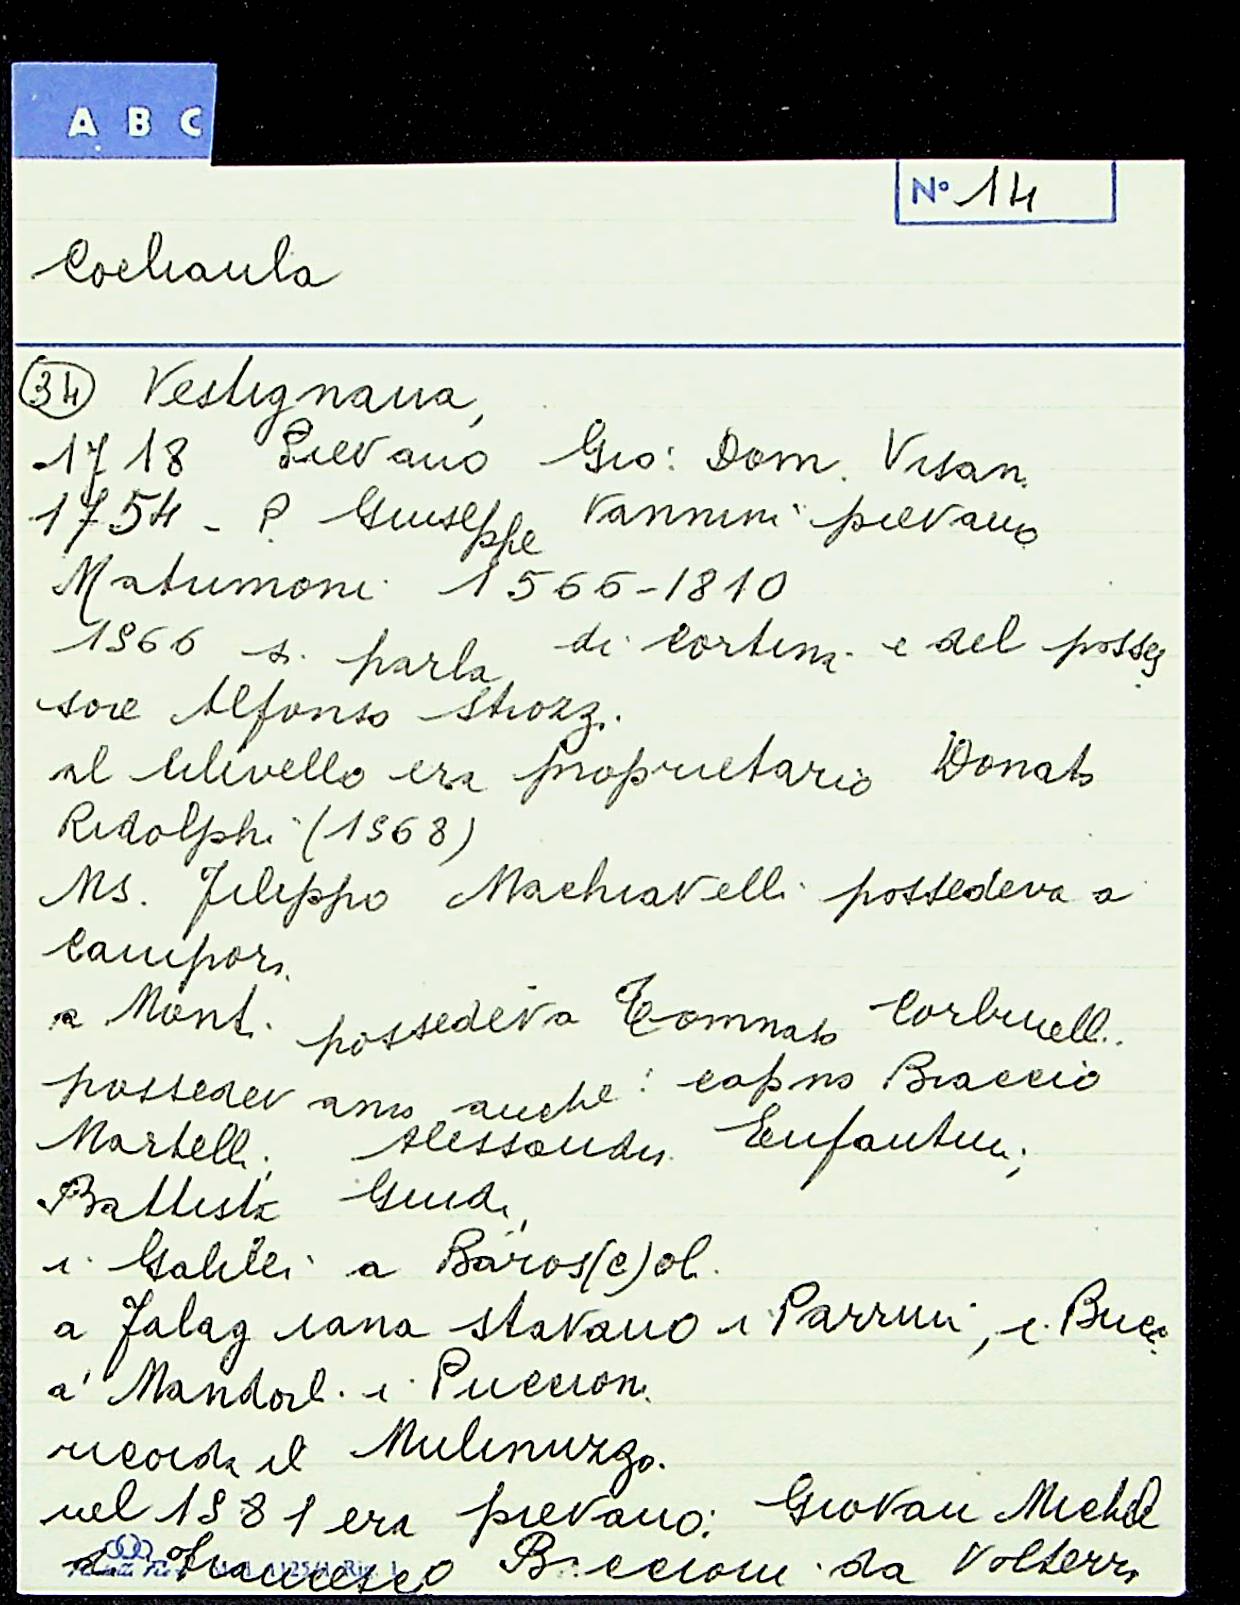 A B C
Nº 14
Cochaula
34 Vestignana,
1718 Pievano Gio: Dom. Visan.
1754 - P. Giuseppe Vannini pievano
Matrimoni 1566-1810
1566 si parla di Cortina e del posses
sore Alfonso Strozzi.
al Ulivello era proprietario Donato
Ridolphi (1568)
Ms. Filippo Machiavelli possedeva a
Campori.
a Monti possedeva Tommaso Corbinelli.
possedevano anche: capno Braccio
Martelli; Alessandro
Battista Guidi,
i Galilei a Baros(c)oli.
a Falagiana stavano i Parrini, i Bucci
a' Mandorli i Puccioni.
ricorda il Mulinuzzo.
nel 1581 era pievano: Giovan Michele
Francesco da Volterra